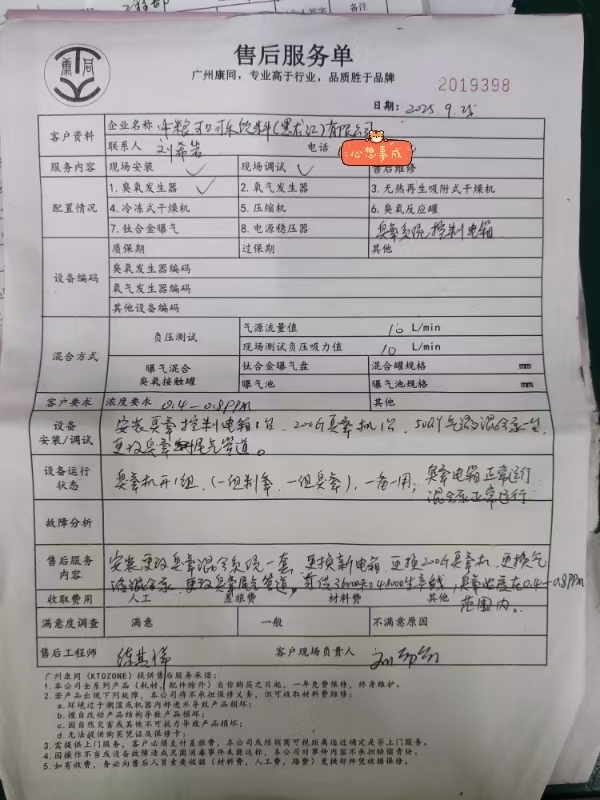 康同
售后服务单
广州康同，专业高于行业，品质胜于品牌
2019398
日期：2025.9.25
客户资料 企业名称 中粮可口可乐饮料(黑龙江)有限公司
联系人 刘希岩 电话 心想事成
服务内容 现场安装 ✓ 现场调试 ✓ 售后维修
配置情况 1. 臭氧发生器 ✓ 2. 氧气发生器 3. 无热再生吸附式干燥机
4. 冷冻式干燥机 5. 压缩机 6. 臭氧反应罐
7. 钛合金曝气 8. 电源稳压器 臭氧系统控制电箱
设备编码 质保期 过保期 其他
臭氧发生器编码
氧气发生器编码
其他设备编码
混合方式 负压测试 气源流量值 10 L/min
现场测试负压吸力值 10 L/min
曝气混合 钛合金曝气盘 混合罐规格 mm
臭氧接触罐 曝气池 曝气池规格 mm
客户要求 浓度要求 0.4-0.8PPM 其他
设备安装/调试 安装臭氧控制电箱1台，200g臭氧机1台，50QY气液混合泵一台
更改臭氧尾气管道。
设备运行状态 臭氧机开1组，(一组制氧，一组臭氧)，一备一用；臭氧电箱正常运行
混合泵正常运行
故障分析
售后服务内容 安装更改臭氧混合系统一套，更换新电箱，更换200g臭氧机，更换气
液混合泵，更改臭氧尾气管道，生产线，臭氧浓度在0.4-0.8PPM
范围内。
收取费用 人工 差旅费 材料费 其他
满意度调查 满意 一般 不满意原因
售后工程师 客户现场负责人
广州康同（KTOZONE）提供售后服务承诺：
1.本公司全系列产品（耗材、配件除外）自你购买之日起，一年免费保修，终身维护。
2.若产品出现下列故障，本公司将不承担保修义务，但可收取材料费维修：
a.环境过于潮湿或机器内部进水导致产品损坏；
b.擅自改动产品结构导致产品损坏；
c.因自然灾害或其他不可抗力导致产品损坏；
d.无法提供购买凭证及保修卡；
3.需提供上门服务，客户必须支付差旅费，本公司或经销商可视距离远近确定是否上门服务。
4.因操作不当或设备故障造成灭菌消毒事件未能达标，本公司对事件内容不承担赔偿责任。
5.如有收费，务必向售后人员索要收据（材料费，人工费，路费）更换部件凭收据保修。